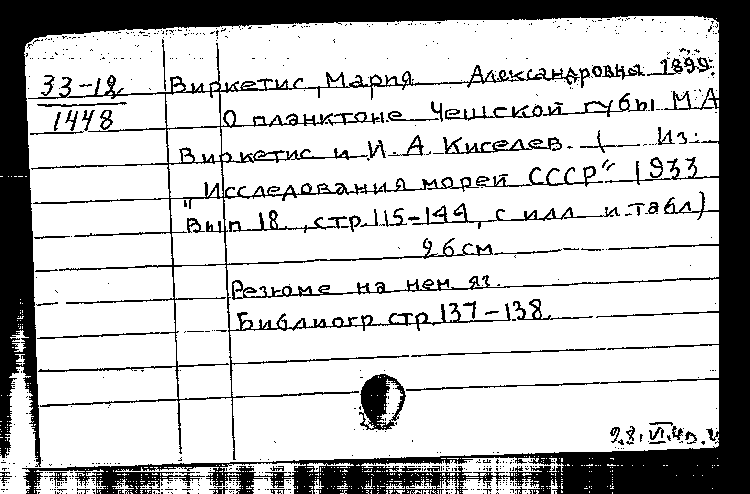 33-12 Виркетис, Мария Александровна 1899.
1448 О планктоне Чешской губы М.А
Виркетис и И.А. Киселев. ( Из:
„Исследования морей СССР" 1933
Вып 18., стр. 115-144, с илл и табл)
26 см
Резюме на нем яз.
Библиогр стр. 137-138.